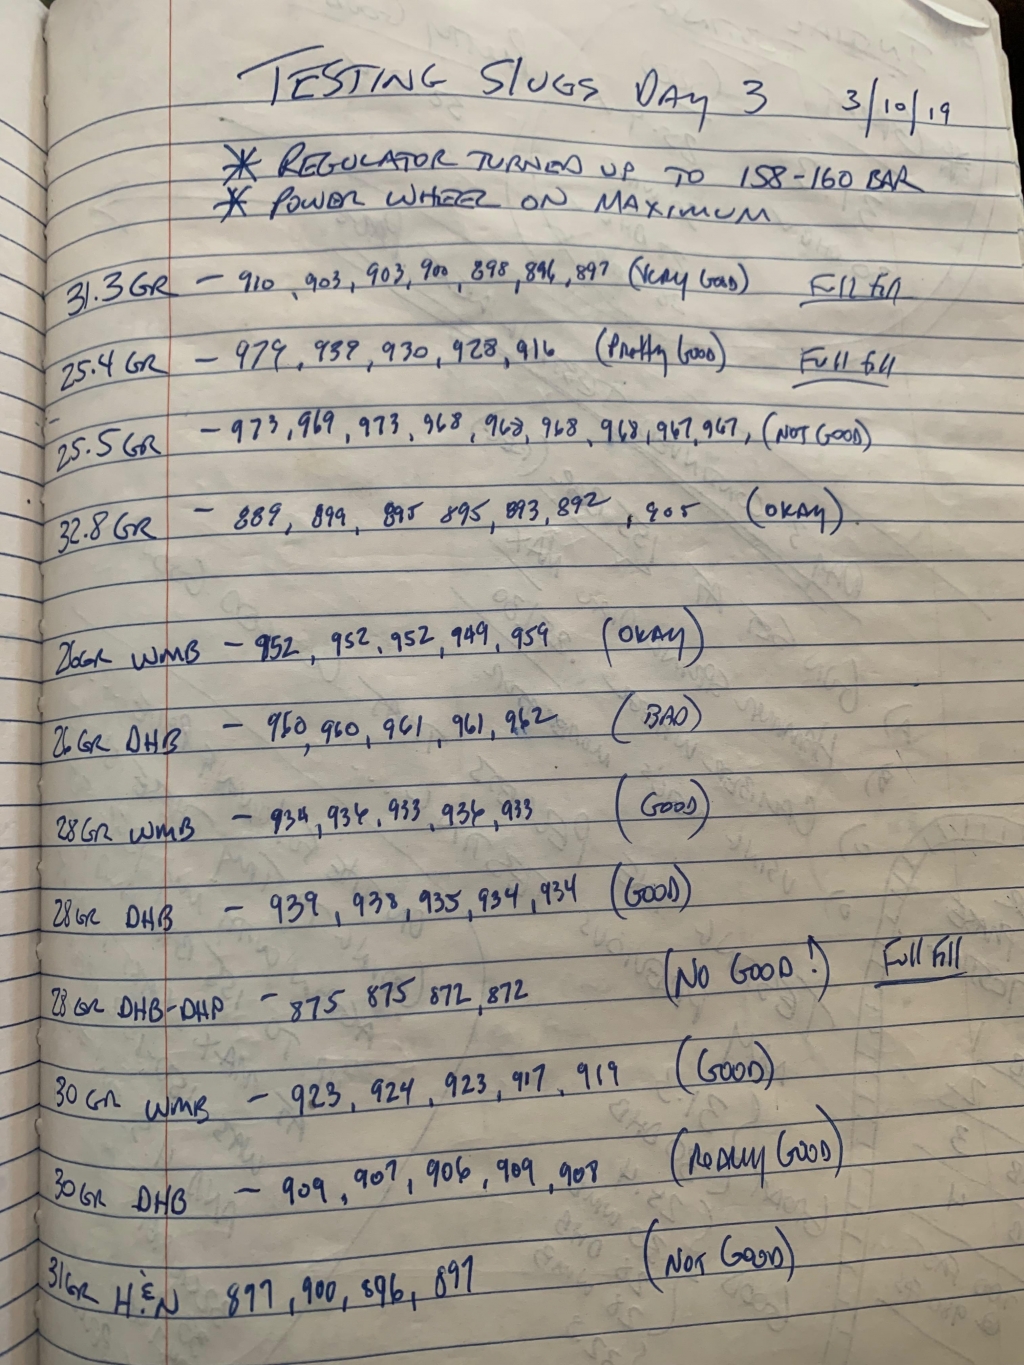 TESTING SLUGS DAY 3 3/10/19
* REGULATOR TURNED UP TO 158-160 BAR
* POWER WHEEL ON MAXIMUM
31.3 GR - 910, 903, 903, 900, 898, 896, 897 (VERY GOOD) Full fill
25.4 GR - 979, 939, 930, 928, 916 (Pretty Good) Full fill
25.5 GR - 973, 969, 973, 968, 968, 968, 968, 967, 967, (NOT GOOD)
32.8 GR - 889, 899, 895 895, 893, 892, 905 (OKAY)
26GR WMB - 952, 952, 952, 949, 959 (OKAY)
26 GR DHB - 960, 960, 961, 961, 962 (BAD)
28GR WMB - 934, 936, 933, 936, 933 (GOOD)
28GR DHB - 939, 938, 935, 934, 934 (GOOD)
28 GR DHB-DHP - 875 875 872, 872 (NO GOOD!) Full Fill
30 GR WMB - 923, 924, 923, 917, 919 (GOOD)
30GR DHB - 909, 907, 906, 909, 908 (REALLY GOOD)
31GR H&N 897, 900, 896, 897 (NOT GOOD)